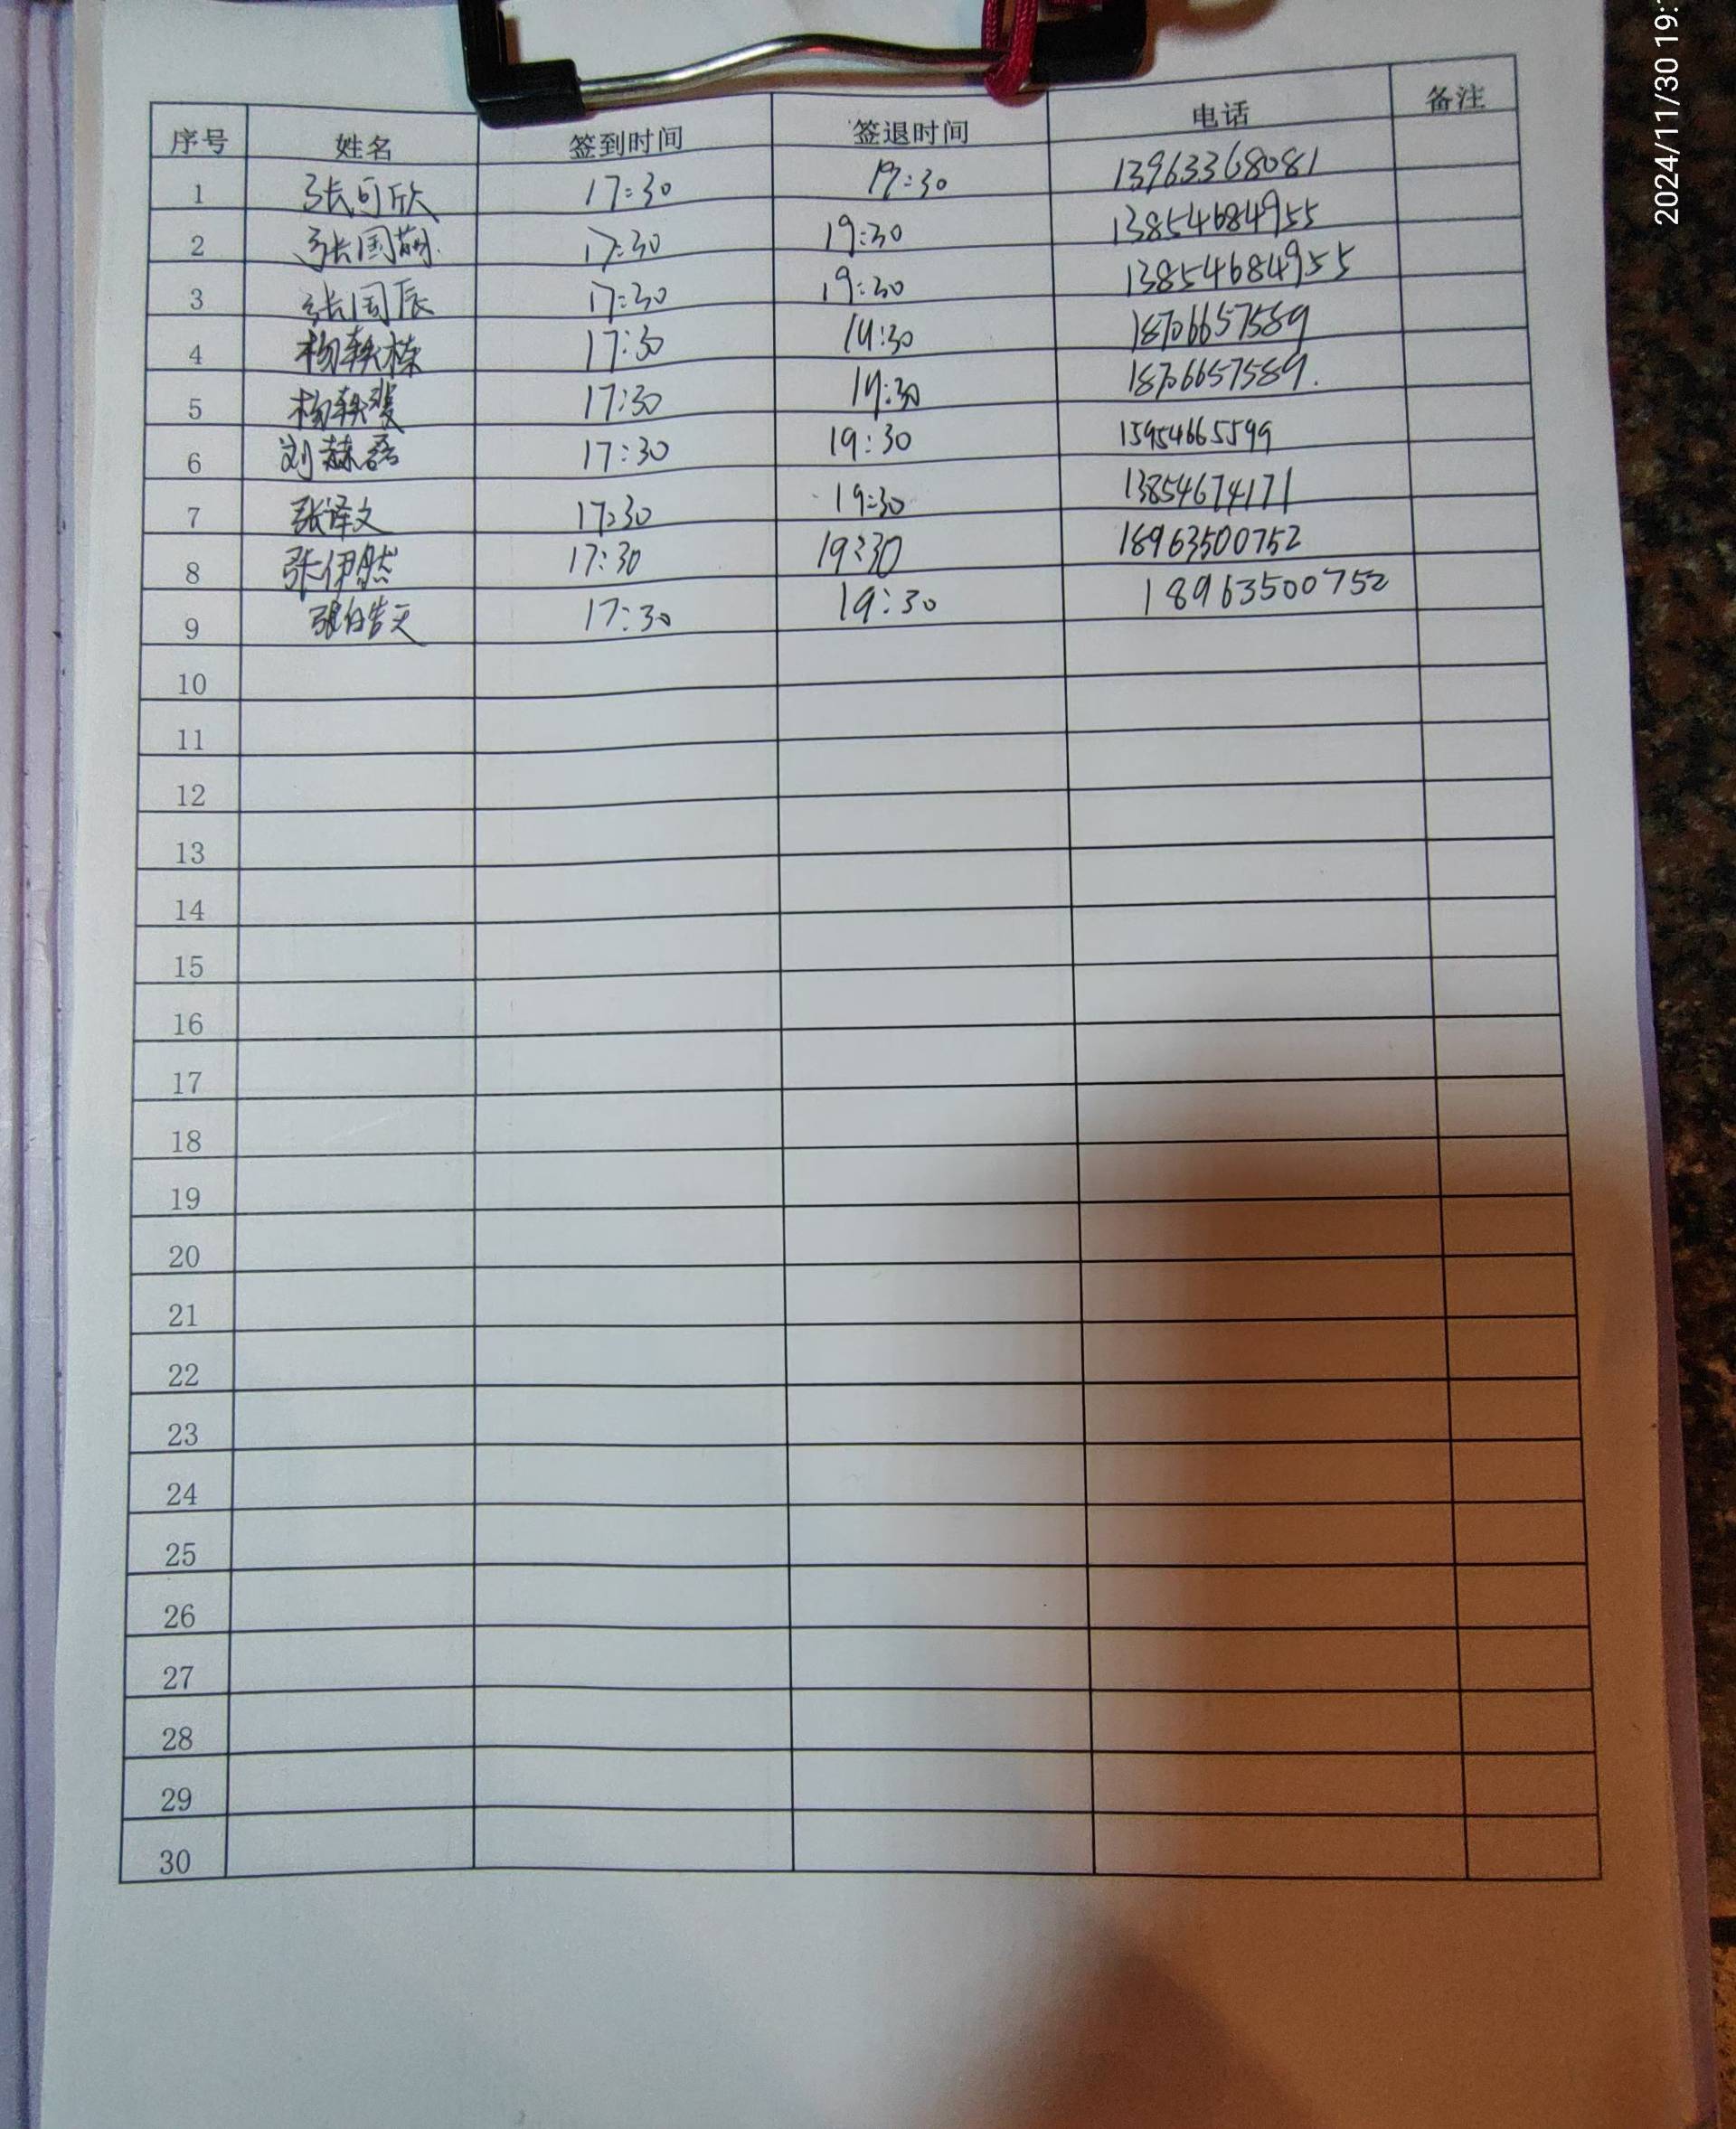 2024/11/30 19:
序号 姓名 签到时间 签退时间 电话 备注
1 张可欣 17:30 19:30 13963368081
2 张国萌 17:30 19:30 13854684955
3 张国辰 17:30 19:30 13854684955
4 杨轶栋 17:30 19:30 18706657589
5 杨轶 17:30 19:30 18706657589.
6 刘赫磊 17:30 19:30 15954665599
7 张译文 17:30 19:30 13854674171
8 张伊然 17:30 19:30 18963500752
9 张皓天 17:30 19:30 18963500752
10
11
12
13
14
15
16
17
18
19
20
21
22
23
24
25
26
27
28
29
30